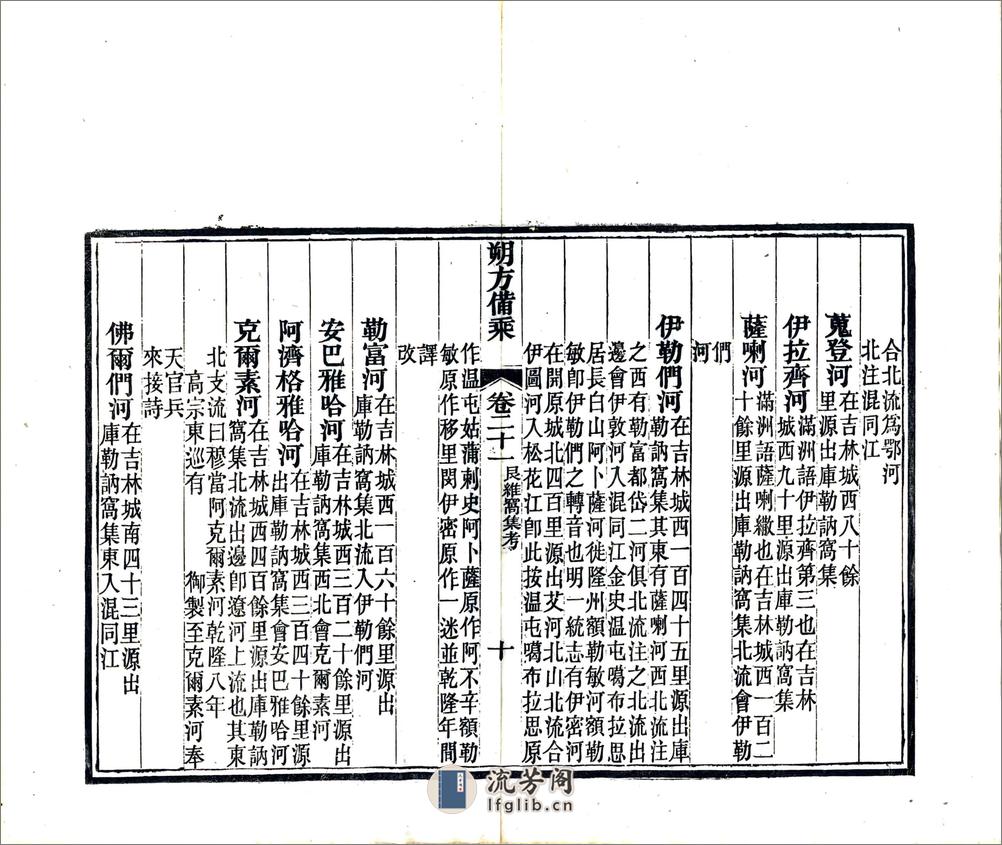 合北流爲鄂河
北注混同江
蒐登河在吉林城西八十餘
里源出庫勒訥窩集
伊拉齊河滿洲語伊拉齊第三也在吉林
城西九十里源出庫勒訥窩集
薩喇河滿洲語薩喇繖也在吉林城西一百二
十餘里源出庫勒訥窩集北流會伊勒
們
河
伊勒們河在吉林城西一百四十五里源出庫
勒訥窩集其東有薩喇河西北流注
之西有勒富都岱二河俱北流注之北流出
邊會伊敦河入混同江金史温屯噶布拉思
居長白山阿卜薩河徙隆州額勒敏河額勒
敏卽伊勒們之轉音也明一統志有伊密河
在開原城北四百里源出艾河北山北流合
伊圖河入松花江卽此按温屯噶布拉思原
朔方備乘
卷二十一
艮維窩集考
十
作温屯姑蒲剌史阿卜薩原作阿不辛額勒
敏原作移里閔伊密原作一迷並乾隆年間
譯
改
勒富河在吉林城西一百六十餘里源出
庫勒訥窩集北流入伊勒們河
安巴雅哈河在吉林城西三百二十餘里源出
庫勒訥窩集西北會克爾素河
阿濟格雅哈河在吉林城西三百四十餘里源
出庫勒訥窩集會安巴雅哈河
克爾素河在吉林城西四百餘里源出庫勒訥
窩集北流出邊卽遼河上流也其東
北支流曰穆當阿克爾素河乾隆八年
高宗東巡有 御製至克爾素河奉
天官兵
來接詩
佛爾們河在吉林城南四十三里源出
庫勒訥窩集東入混同江
流芳阁
lfglib.cn